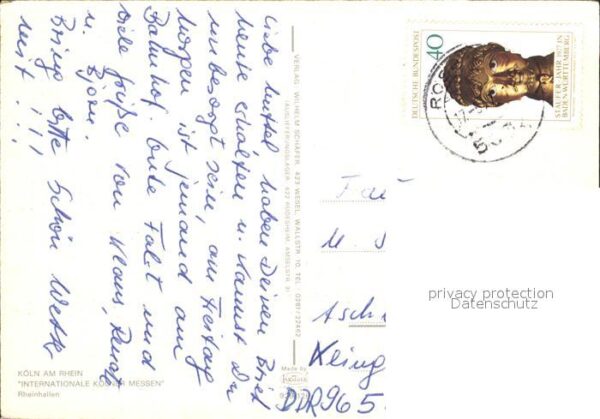 Liebe Muttel, haben Deinen Brief
heute erhalten u. kannst Du
unbesorgt sein, am Freitag
morgen ist jemand am
Bahnhof. Gute Fahrt und
viele Grüße von Klaus, Renate
u. Björn.
Bring bitte schön Wetter
mit!!!
KÖLN AM RHEIN
"INTERNATIONALE KÖLNER MESSEN"
Rheinhallen
VERLAG WILHELM SCHÄFER, 423 WESEL, WALLSTR. 10, TEL. 0281/22462
(AUSLIEFERUNGSLAGER: 622 RÜDESHEIM, AMSELSTR. 3)
Made by
KRÜGER
DEUTSCHE BUNDESPOST
40
STAUFER-JAHR 1977 IN
BADEN-WÜRTTEMBERG
M. S
Asch
Kling
DDR 965
privacy protection
Datenschutz